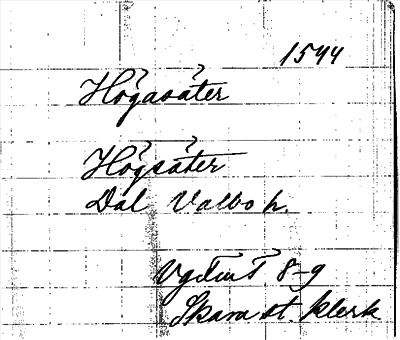 1544
Högasäter
Högsäter
Dal Valbo h.
Vg Tint 8-9
Skara st. klerk